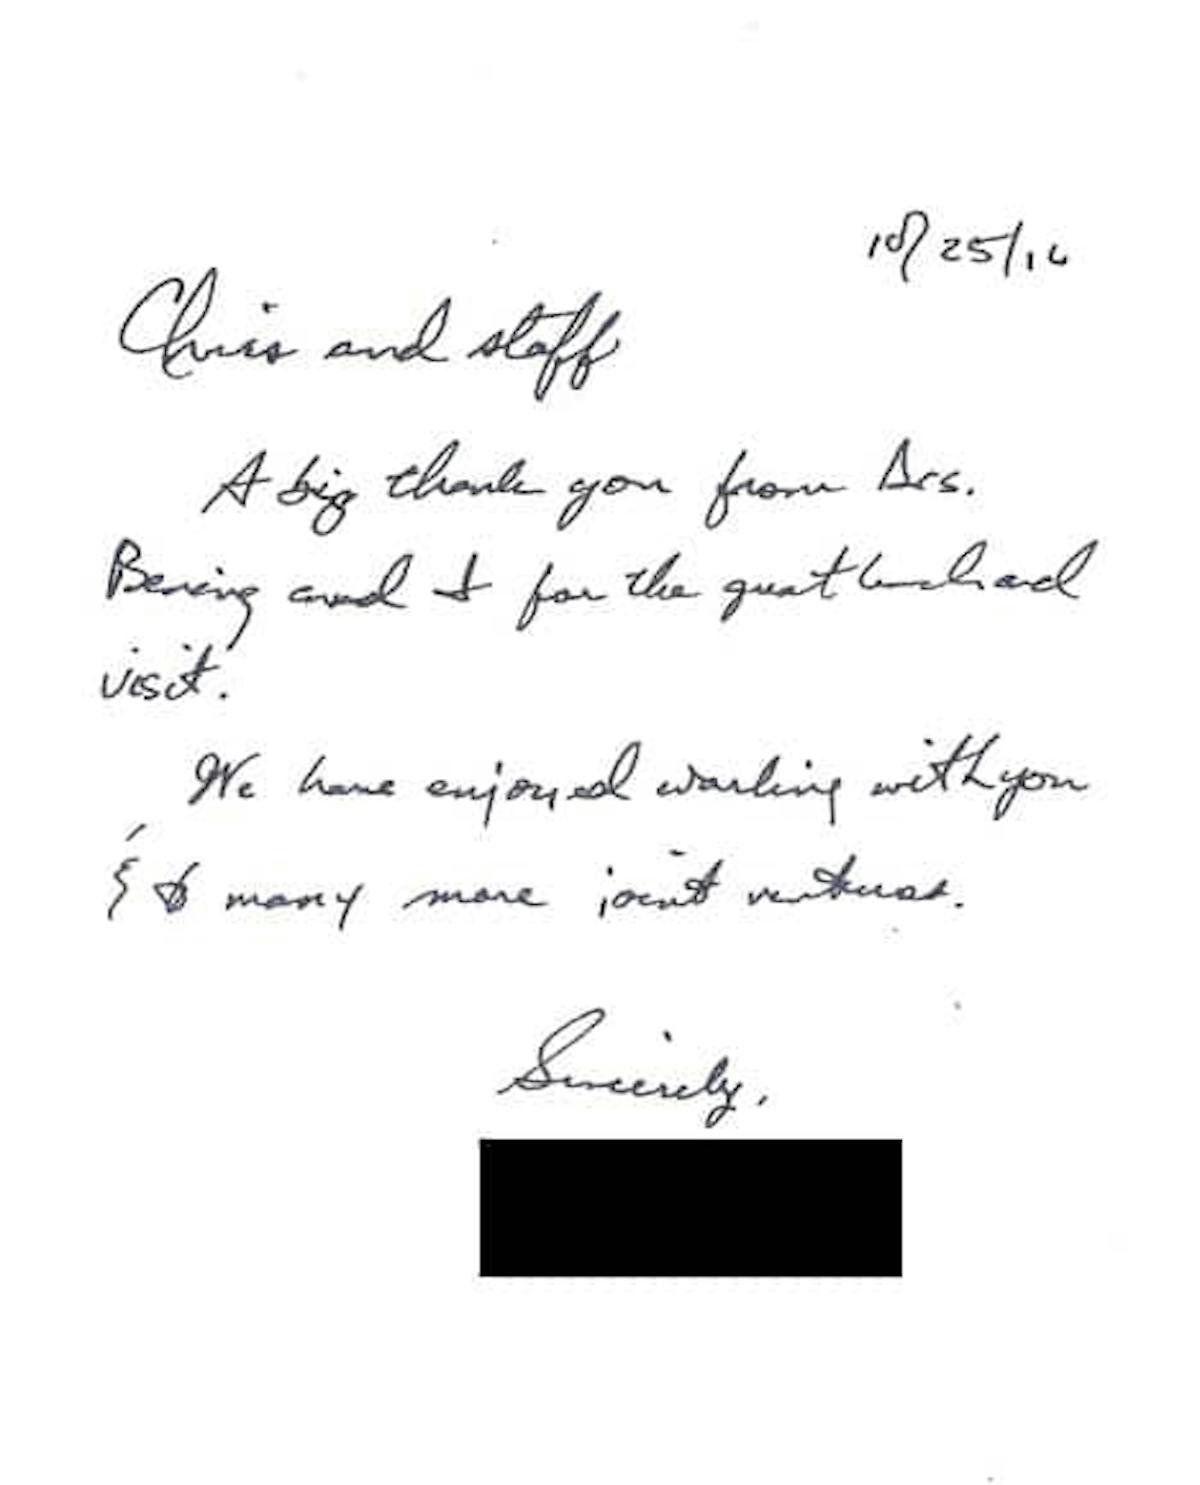 10/25/16
Chris and staff
A big thank you from Drs.
Bering and I for the great lunch and
visit.
We have enjoyed working with you
& to many more joint ventures.
Sincerely,